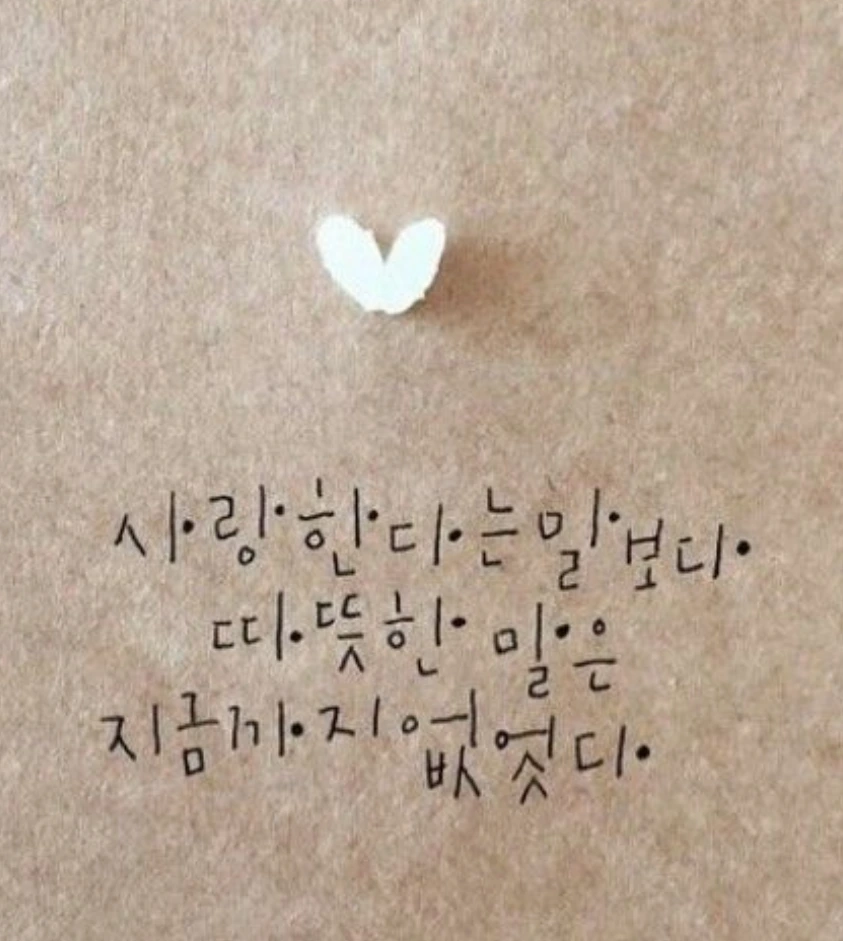 사랑한다는 말보다
따뜻한 말은
지금까지 없엇다